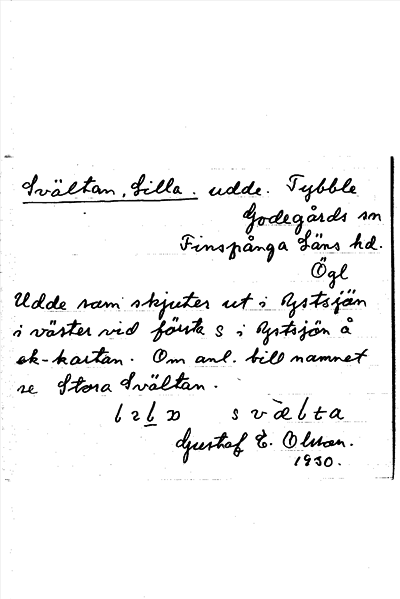 Svältan, Lilla. udde. Tybble
Godegårds sn
Finspånga Läns hd.
Ögl
Udde som skjuter ut i Ystsjön
i väster vid första s i Ystsjön å
ek-kartan. Om anl. till namnet
se Stora Svältan.
svæ̀lta
Gustaf E. Olsson.
1930.